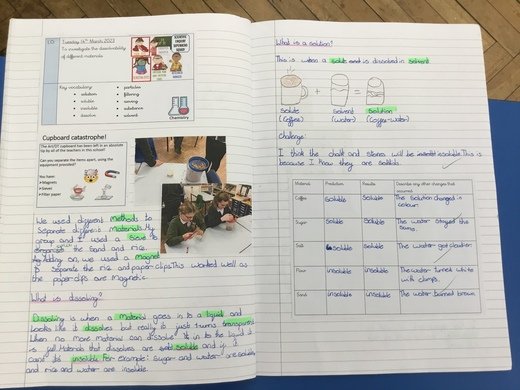 LO
Tuesday 14th March 2023
To investigate the dissolvability
of different materials.
Key vocabulary
solution
soluble
insoluble
dissolve
particles
filtering
sieving
substance
solvent
Chemistry
Cupboard catastrophe!
The Art/DT cupboard has been left in an absolute
tip by all of the teachers in this school!
Can you separate the items apart, using the
equipment provided?
You have:
Magnets
Sieves
Filter paper
We used different methods to
separate different materials. My
group and I used a sieve to
the sand and rice.
As Adding on, we used a magnet
to separate the rice and paperclips. This worked well as
the paperclips are magnetic.
What is dissolving?
Dissolving is when a material goes in to a liquid and
looks like it dissolves but really it's just turns transparent.
When no more material can dissolve in to the liquid it
is full. Materials that dissolves are soluble and if it
can't it's insoluble. For example: sugar and water are soluble
and rice and water are insoluble.
What is a solution?
This is when a solute is dissolved in solvent
+ =
Solute Solvent Solution
(Coffee) (water) (Coffee-water)
Challenge!
I think the chalk and stones will be insoluble. This is
because I know they are solids.
Material Prediction Results Describe any other changes that occurred
Coffee soluble soluble The solution changed in colour.
Sugar soluble soluble The water stayed the same.
Salt soluble soluble The water got cloudier.
Flour insoluble insoluble The water turned white with clumps.
Sand insoluble insoluble The water turned brown